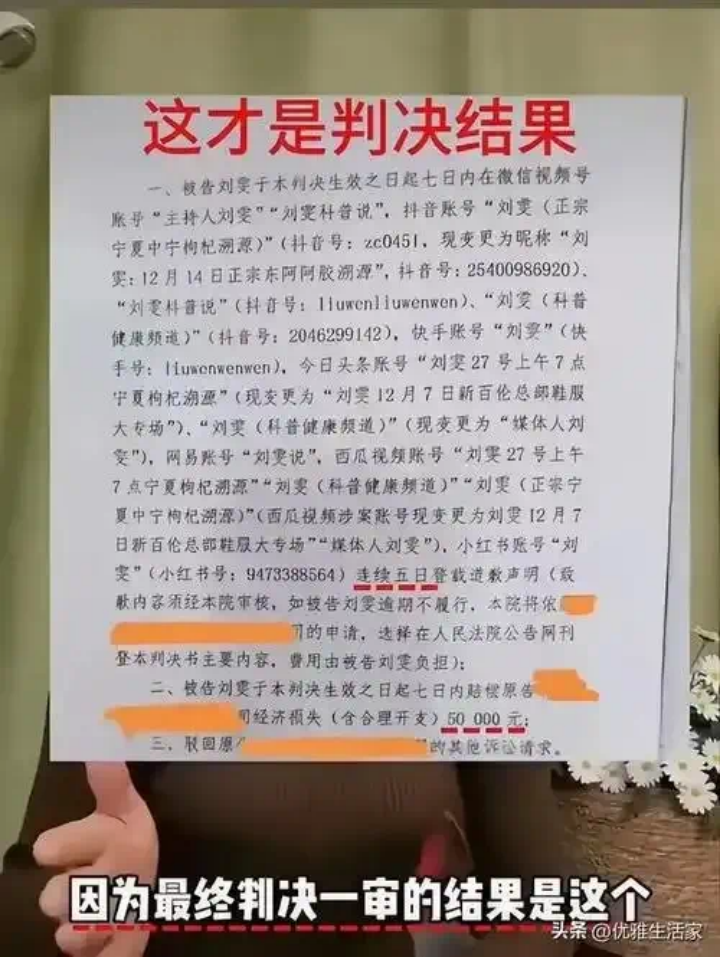 这才是判决结果
一、被告刘雯于本判决生效之日起七日内在微信视频号
账号“主持人刘雯”“刘雯科普说”，抖音账号“刘雯（正宗
宁夏中宁枸杞溯源）”（抖音号：zc045l，现变更为昵称“刘
雯：12月14日正宗东阿阿胶溯源”，抖音号：25400986920）、
“刘雯科普说”（抖音号：liuwenliuwenwen）、“刘雯（科普
健康频道）”（抖音号：2046299142），快手账号“刘雯”（快
手号：liuwenwenwen），今日头条账号“刘雯27号上午7点
宁夏枸杞溯源”（现变更为“刘雯12月7日新百伦总部鞋服
大专场”）、“刘雯（科普健康频道）”（现变更为“媒体人刘
雯”），网易账号“刘雯说”，西瓜视频账号“刘雯27号上午
7点宁夏枸杞溯源”“刘雯（科普健康频道）”“刘雯（正宗宁
夏中宁枸杞溯源）”（西瓜视频涉案账号现变更为刘雯12月7
日新百伦总部鞋服大专场”“媒体人刘雯”），小红书账号“刘
雯”（小红书号：9473388564）连续五日登载道歉声明（致
歉内容须经本院审核，如被告刘雯逾期不履行，本院将依
司的申请，选择在人民法院公告网刊
登本判决书主要内容，费用由被告刘雯负担）；
二、被告刘雯于本判决生效之日起七日内赔偿原告
司经济损失（含合理开支）50 000元；
三、驳回原 的其他诉讼请求。
因为最终判决一审的结果是这个
头条 @优雅生活家